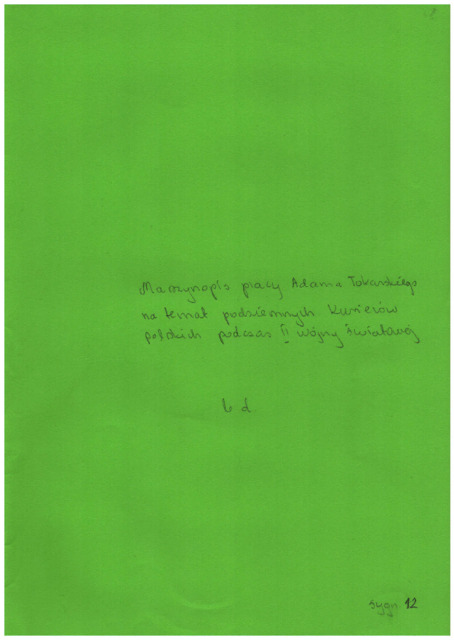 Maszynopis pracy Adama Tokarskiego
na temat podziemnych kurierów
polskich podczas II wojny światowej
b d
sygn 12